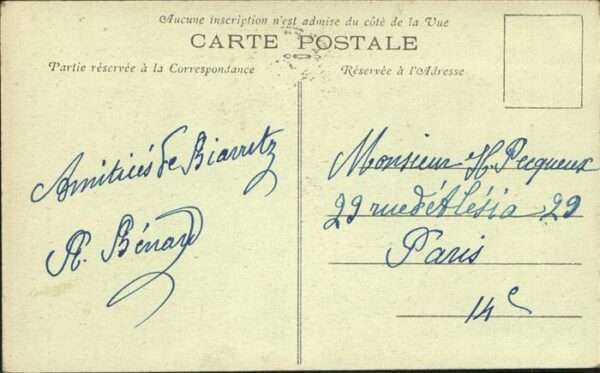 Aucune inscription n'est admise du côté de la Vue
CARTE POSTALE
Partie réservée à la Correspondance
Réservée à l'Adresse
Amitiés de Biarritz
A. Bénard
Monsieur H. Pecqueux
29 rue d'Alésia 29
Paris
14e